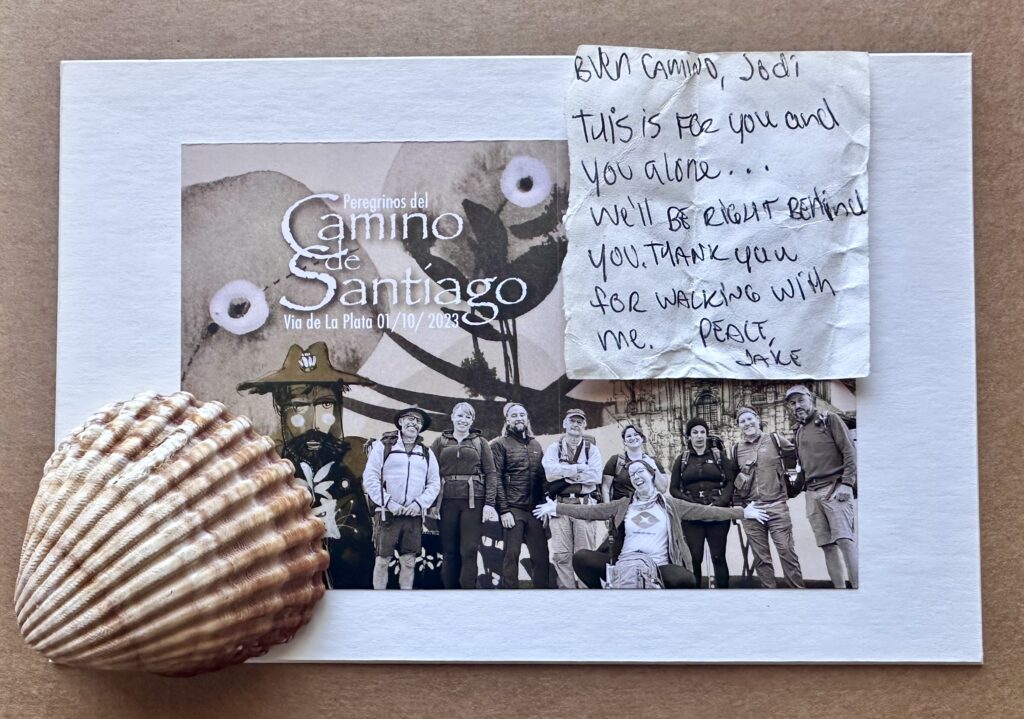 Peregrinos del
Camino
de
Santiago
Via de La Plata 01/10/ 2023
BUEN CAMINO, Jodi
THIS IS FOR you and
you alone...
We'll BE RIGHT BEHIND
YOU. THANK you
for WALKING WITH
me. PEACE,
JAKE